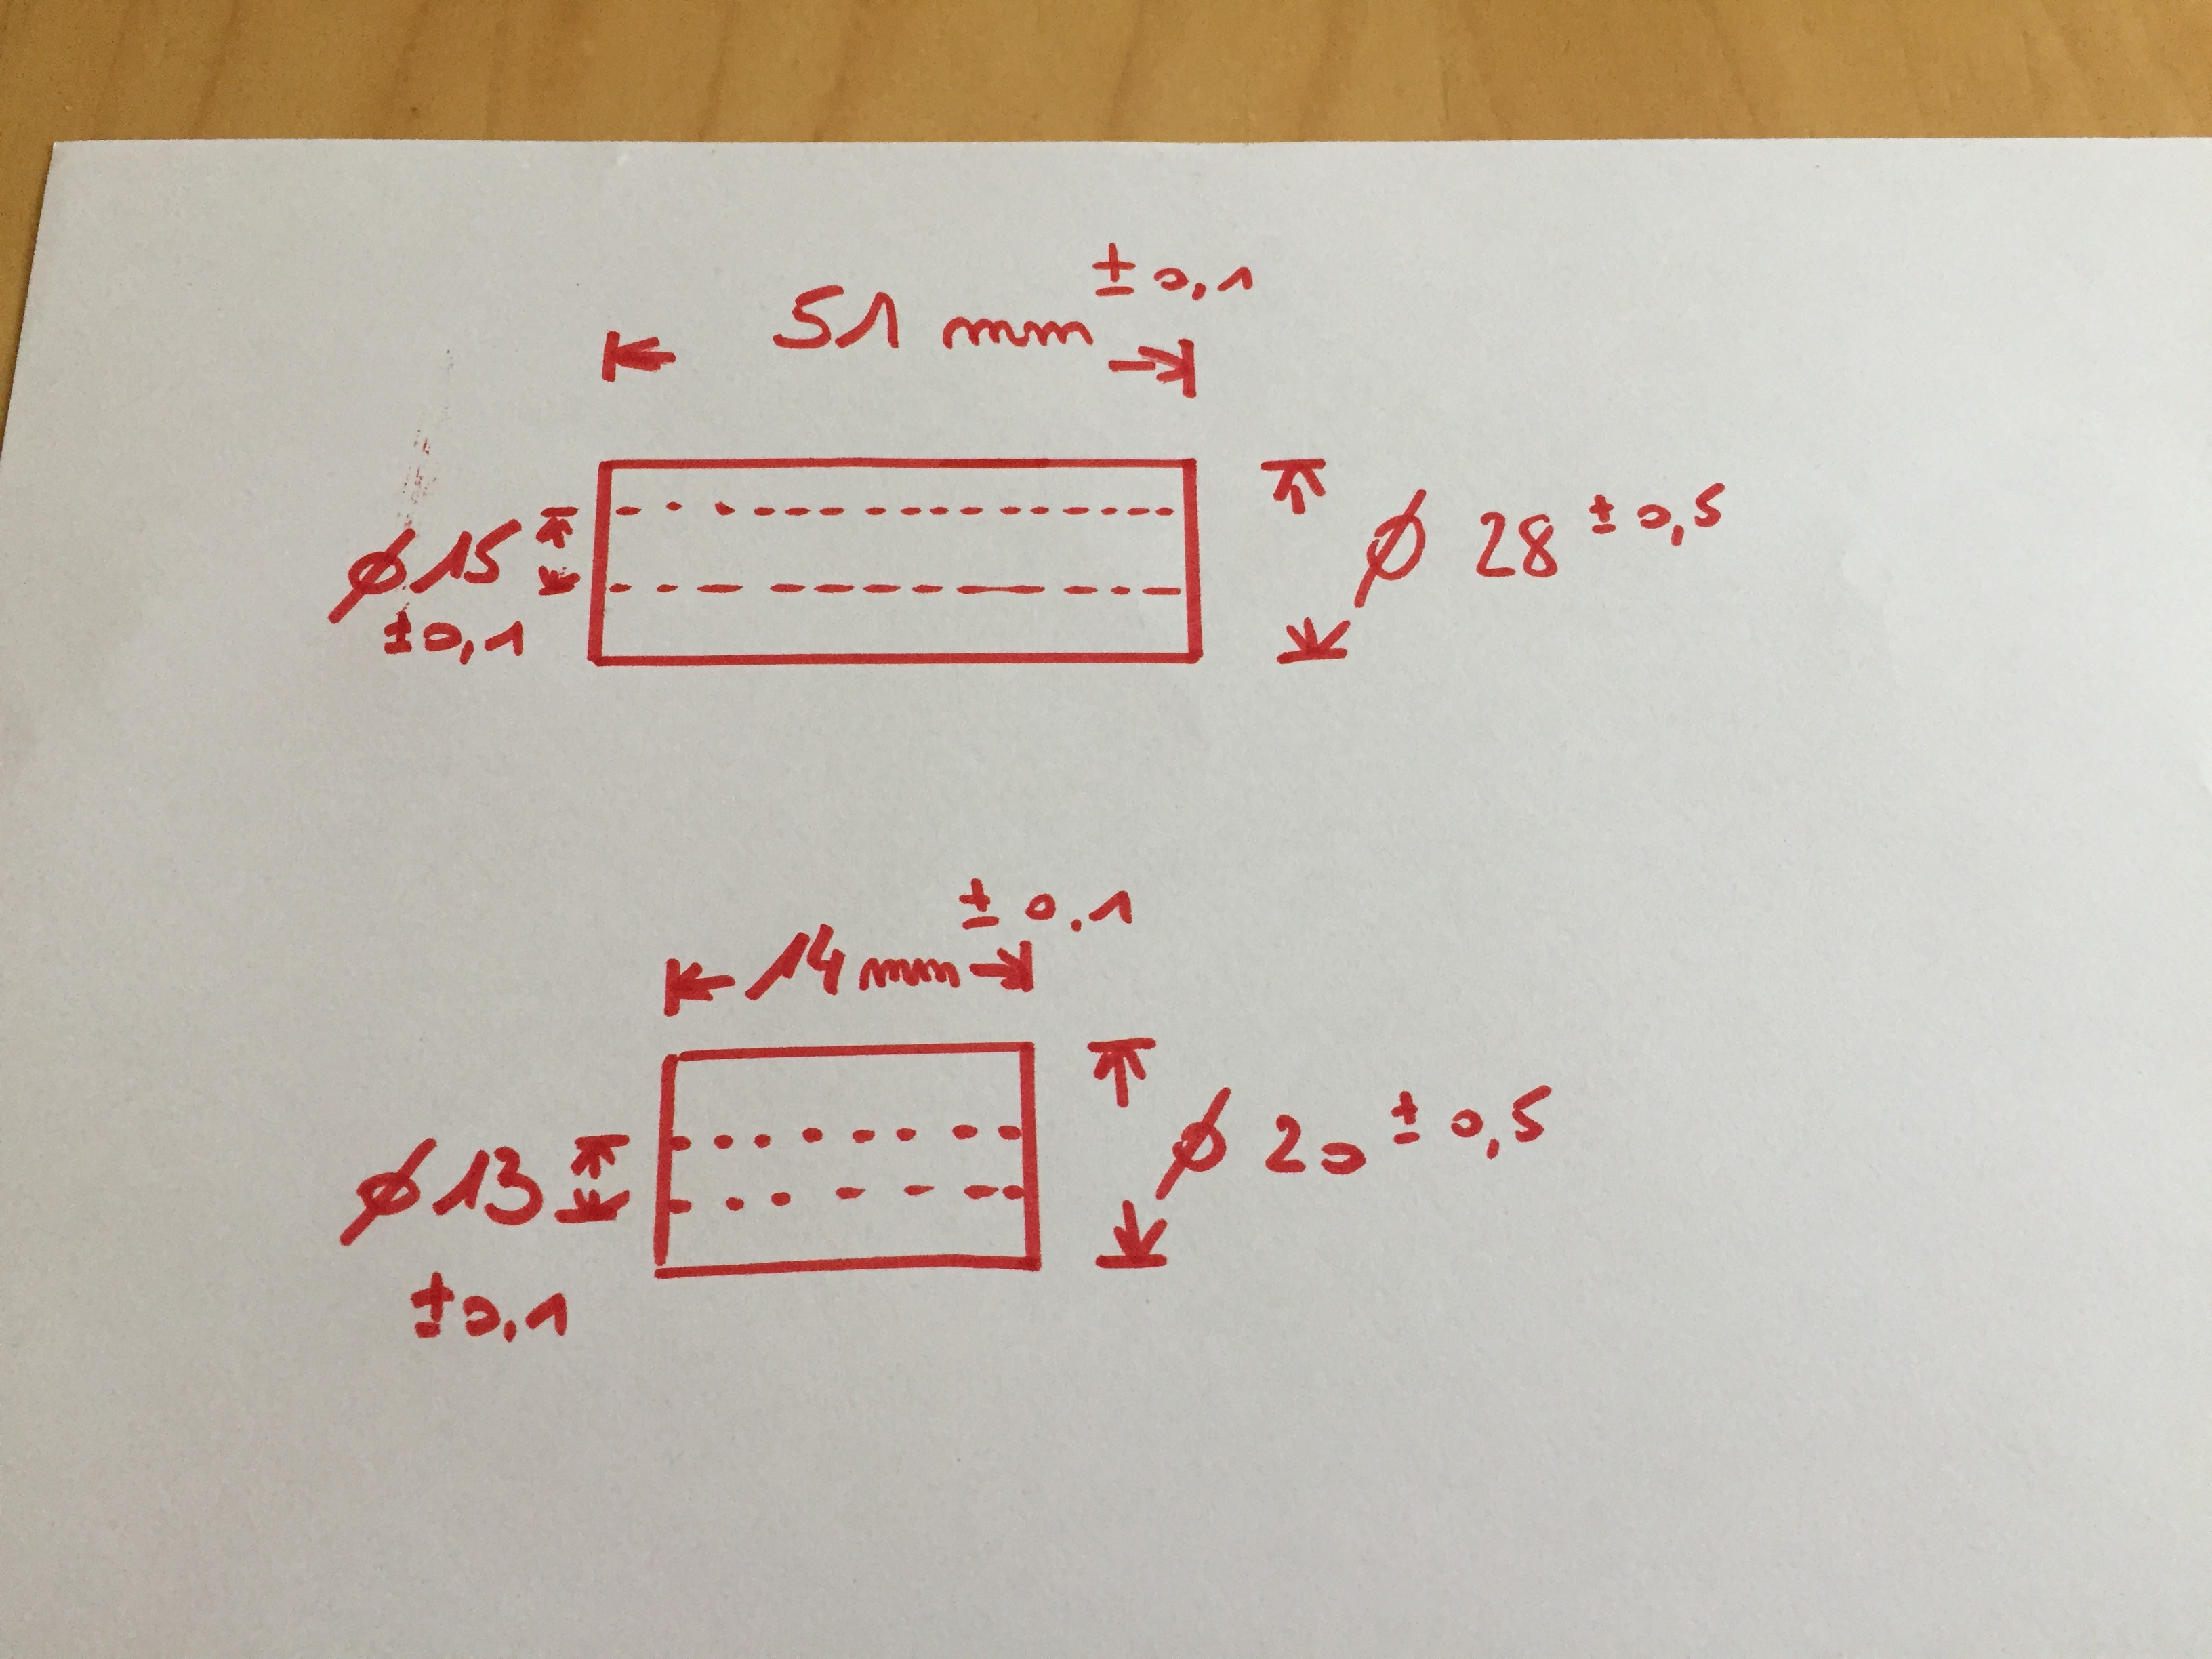 51 mm ± 0,1
ø 15
± 0,1
ø 28 ± 0,5
14 mm ± 0.1
ø 13
± 0,1
ø 20 ± 0,5